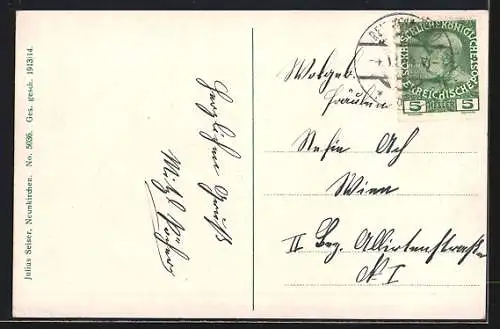 Julius Seiser, Neunkirchen. No. 5036. Ges. gesch. 1913/14.
Herzlichen Gruß
Mitzl
Wolgeb.
Fräulein
Stefie Ach
Wien
II Bez. Allirtenstraße
N I
KAISERLICHE KÖNIGLICHE
ÖSTERREICHISCHE POST
5 HELLER 5